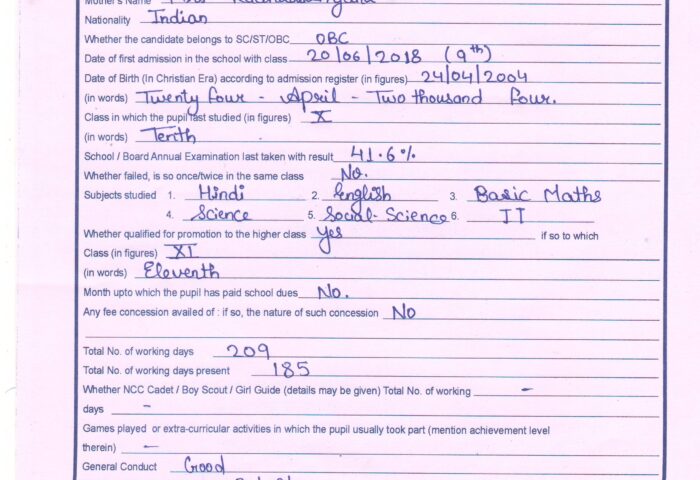 Mother's Name
Nationality Indian
Whether the candidate belongs to SC/ST/OBC OBC
Date of first admission in the school with class 20/06/2018 (9th)
Date of Birth (In Christian Era) according to admission register (in figures) 24/04/2004
(in words) Twenty four - April - Two thousand four.
Class in which the pupil last studied (in figures) X
(in words) Tenth
School / Board Annual Examination last taken with result 41.6%
Whether failed, is so once/twice in the same class No.
Subjects studied 1. Hindi 2. English 3. Basic Maths
4. Science 5. Social-Science 6. IT
Whether qualified for promotion to the higher class yes if so to which
Class (in figures) XI
(in words) Eleventh
Month upto which the pupil has paid school dues No.
Any fee concession availed of : if so, the nature of such concession No
Total No. of working days 209
Total No. of working days present 185
Whether NCC Cadet / Boy Scout / Girl Guide (details may be given) Total No. of working -
days -
Games played or extra-curricular activities in which the pupil usually took part (mention achievement level
therein) -
General Conduct Good